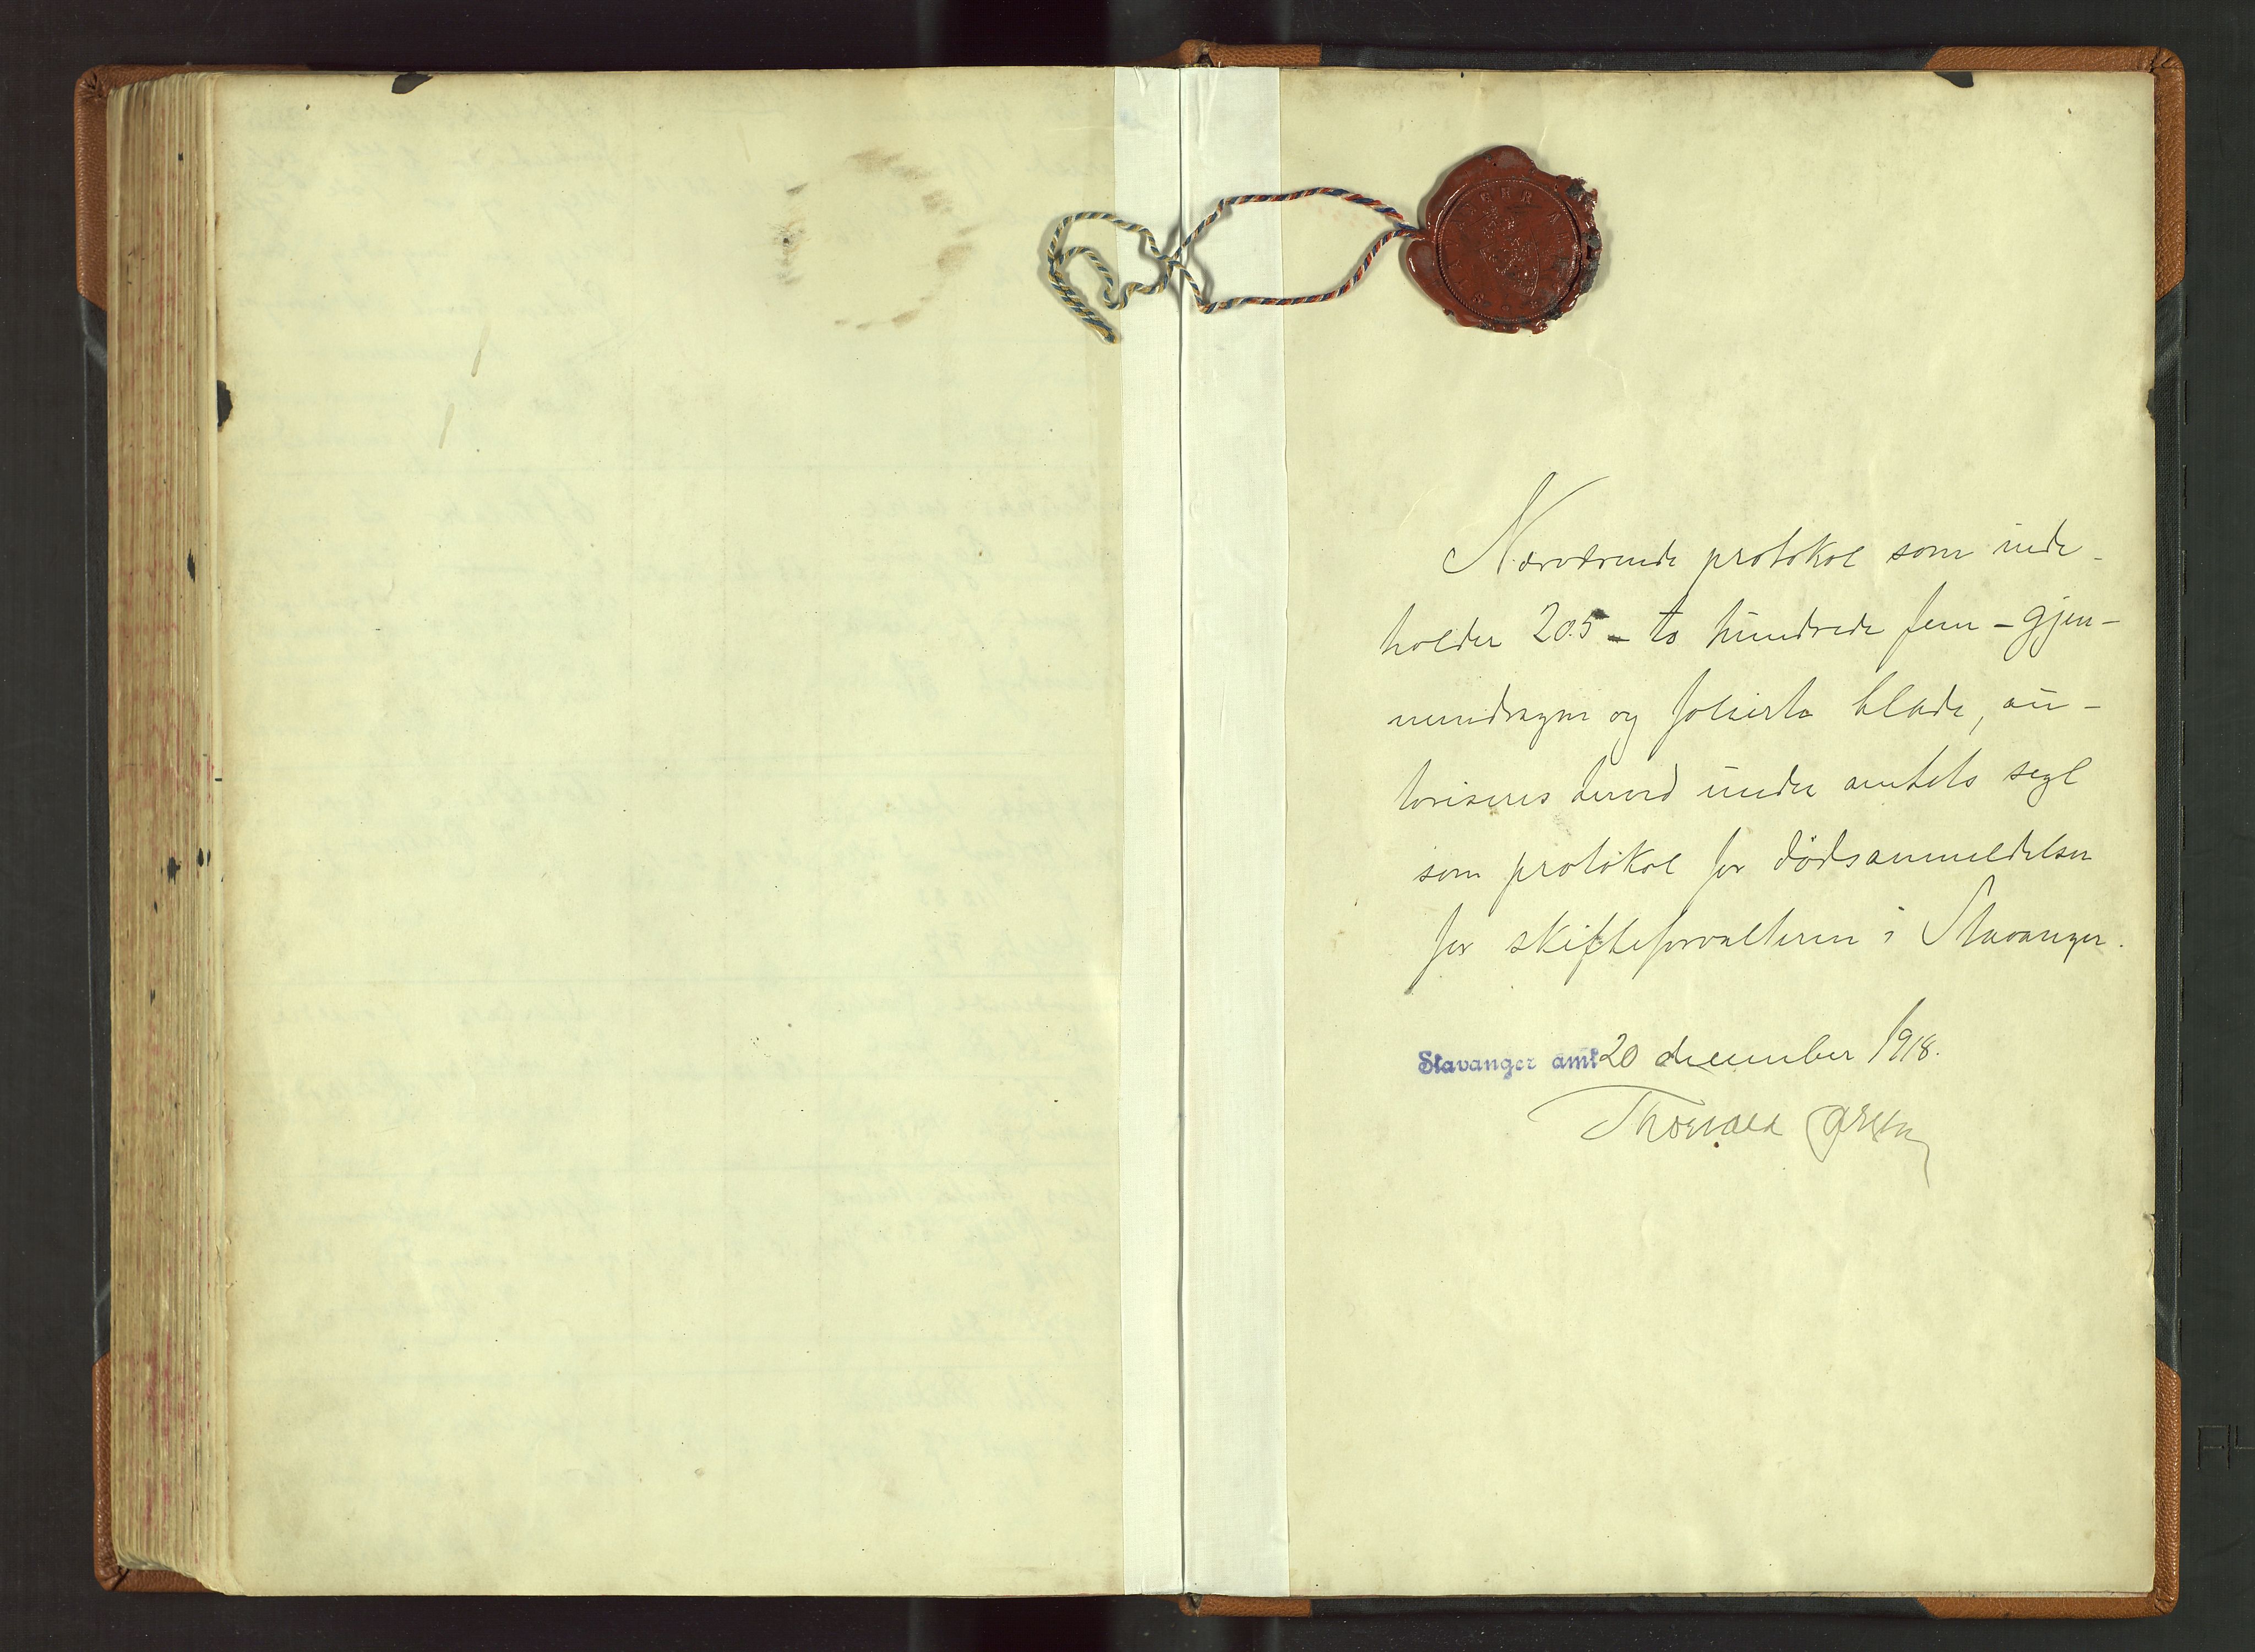 Nærværende protokol som inde-
holder 205 - to hundrede fem - gjen-
nemdragne og folierte blade, au-
toriseres herved under amtets segl
som protokol for dødsanmeldelser
for skifteforvalteren i Stavanger.
Stavanger amt 20 december 1918.
Thorvald